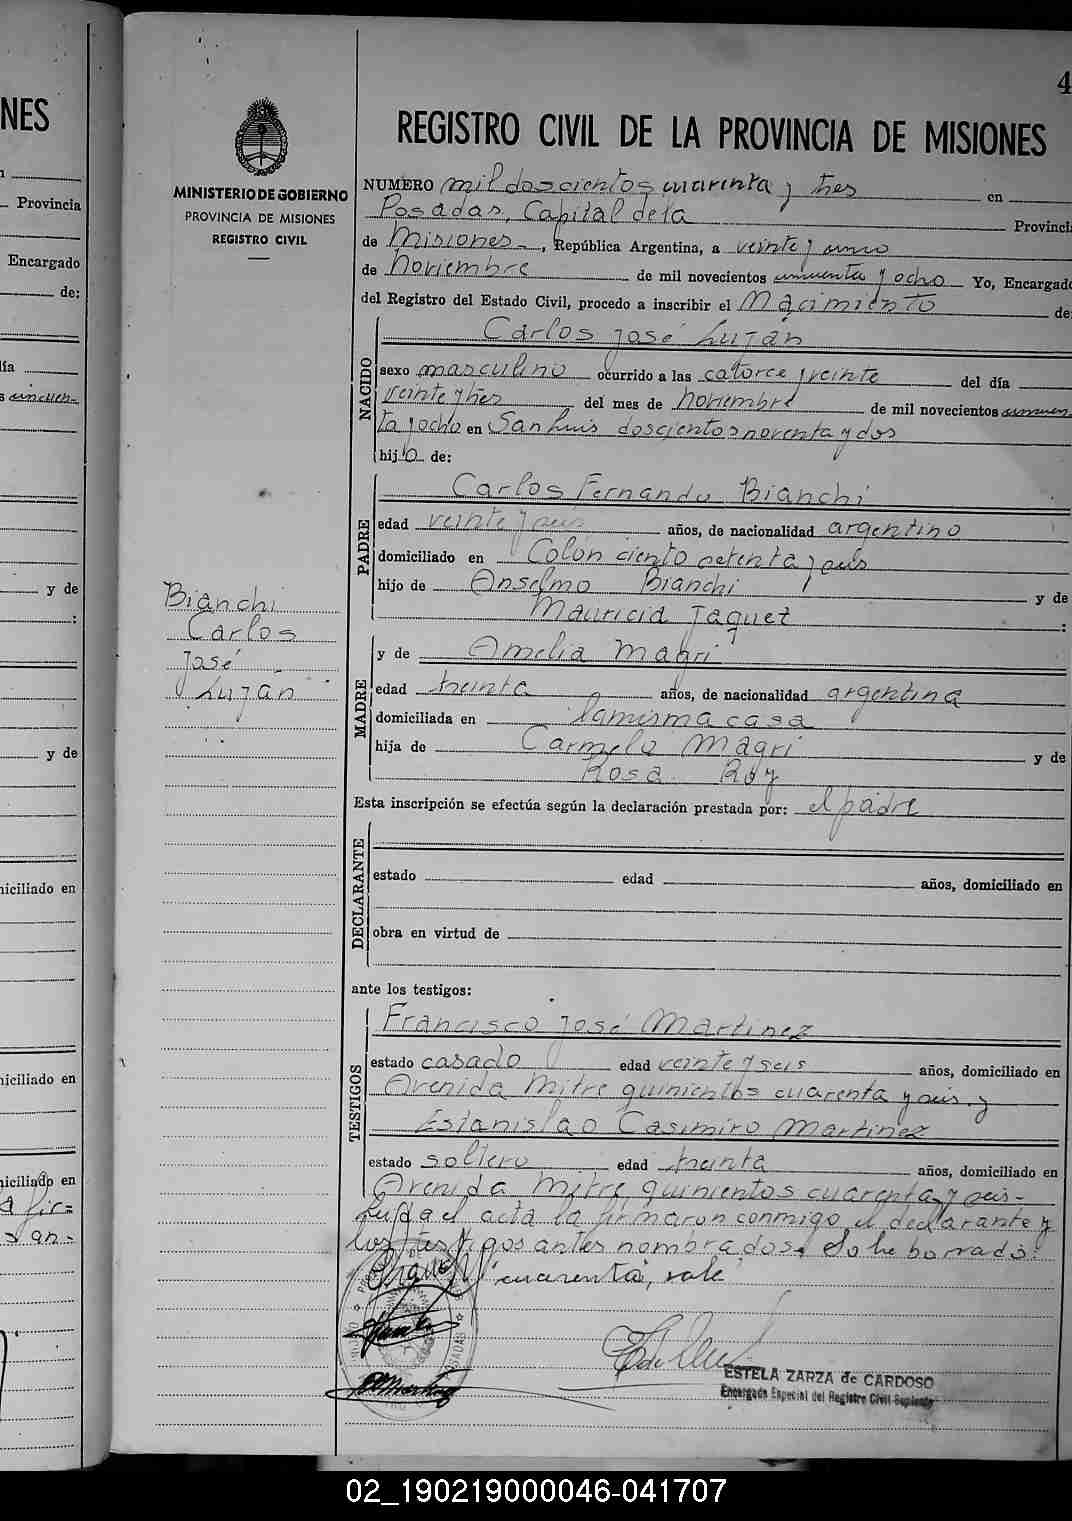 NES
Provincia
Encargado
de:
ía
cincuen-
y de
:
y de
niciliado en
niciliado en
niciliado en
a fir=
san=
4
MINISTERIO DE GOBIERNO
PROVINCIA DE MISIONES
REGISTRO CIVIL
Bianchi
Carlos
José
Luján
REGISTRO CIVIL DE LA PROVINCIA DE MISIONES
NUMERO mil doscientos cuarenta y tres en
Posadas, Capital de la Provincia
de Misiones , República Argentina, a veinte y cinco
de Noviembre de mil novecientos cincuenta y ocho Yo, Encargado
del Registro del Estado Civil, procedo a inscribir el Nacimiento de
NACIDO
Carlos José Luján
sexo masculino ocurrido a las catorce y veinte del día
veinte y tres del mes de Noviembre de mil novecientos cincuen
ta y ocho en San Luis doscientos noventa y dos
hijo de:
PADRE
Carlos Fernando Bianchi
edad veinte y seis años, de nacionalidad argentino
domiciliado en Colón ciento setenta y seis
hijo de Anselmo Bianchi y de
Mauricia Jaquet :
MADRE
y de Amelia Magri
edad treinta años, de nacionalidad argentina
domiciliada en la misma casa
hija de Carmelo Magri y de
Rosa Roy
Esta inscripción se efectúa según la declaración prestada por: el padre
DECLARANTE
estado edad años, domiciliado en
obra en virtud de
ante los testigos:
TESTIGOS
Francisco José Martinez
estado casado edad veinte y seis años, domiciliado en
Avenida Mitre quinientos cuarenta y seis y
Estanislao Casimiro Martinez
estado soltero edad treinta años, domiciliado en
Avenida Mitre quinientos cuarenta y seis-
Leída el acta la firmaron conmigo el declarante y
los testigos antes nombrados. Sobre borrado:
"cuarenta", vale
ESTELA ZARZA de CARDOSO
Encargada Especial del Registro Civil Suplente
02_190219000046-041707